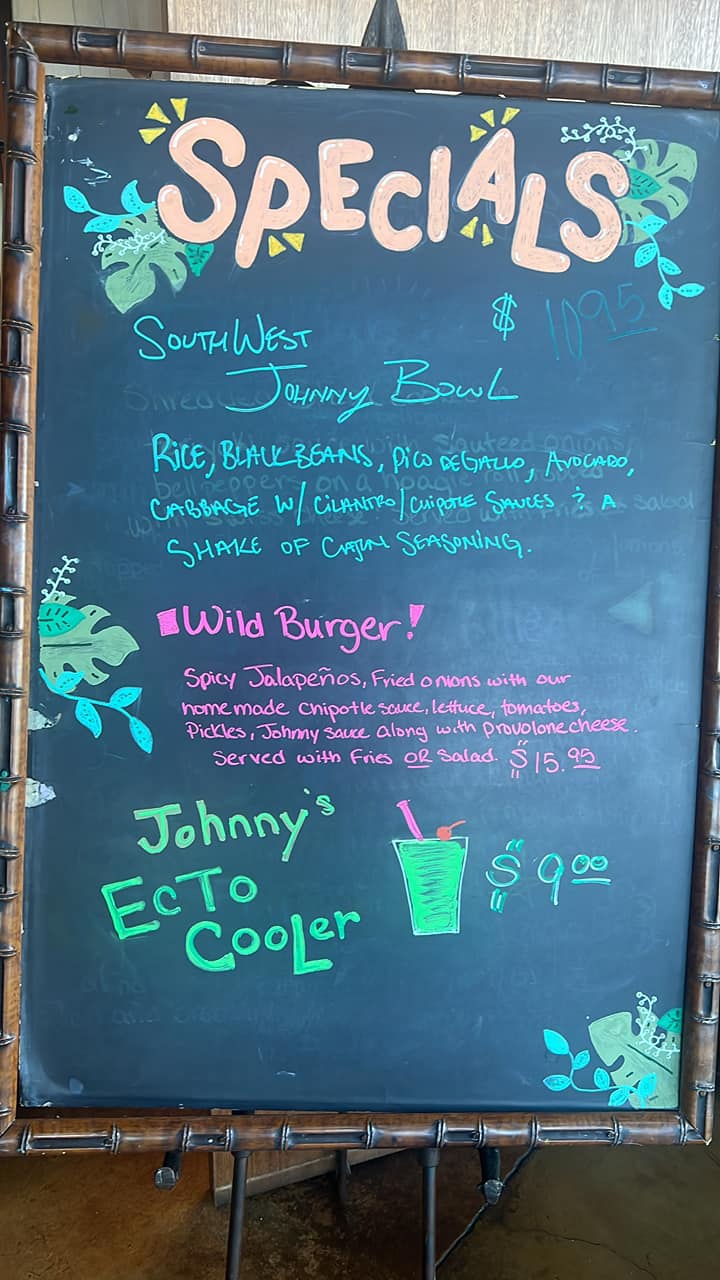 SPECIALS
$ 10.95
SOUTHWEST
JOHNNY BOWL
RICE, BLACK BEANS, PICO DE GALLO, AVOCADO,
CABBAGE W/ CILANTRO/CHIPOTLE SAUCES & A
SHAKE OF CAJUN SEASONING.
Wild Burger!
Spicy Jalapeños, Fried onions with our
homemade chipotle sauce, lettuce, tomatoes,
Pickles, Johnny sauce along with provolone cheese.
Served with Fries OR Salad. $15.95
Johnny's
EcTo
CooLer
$ 9.00